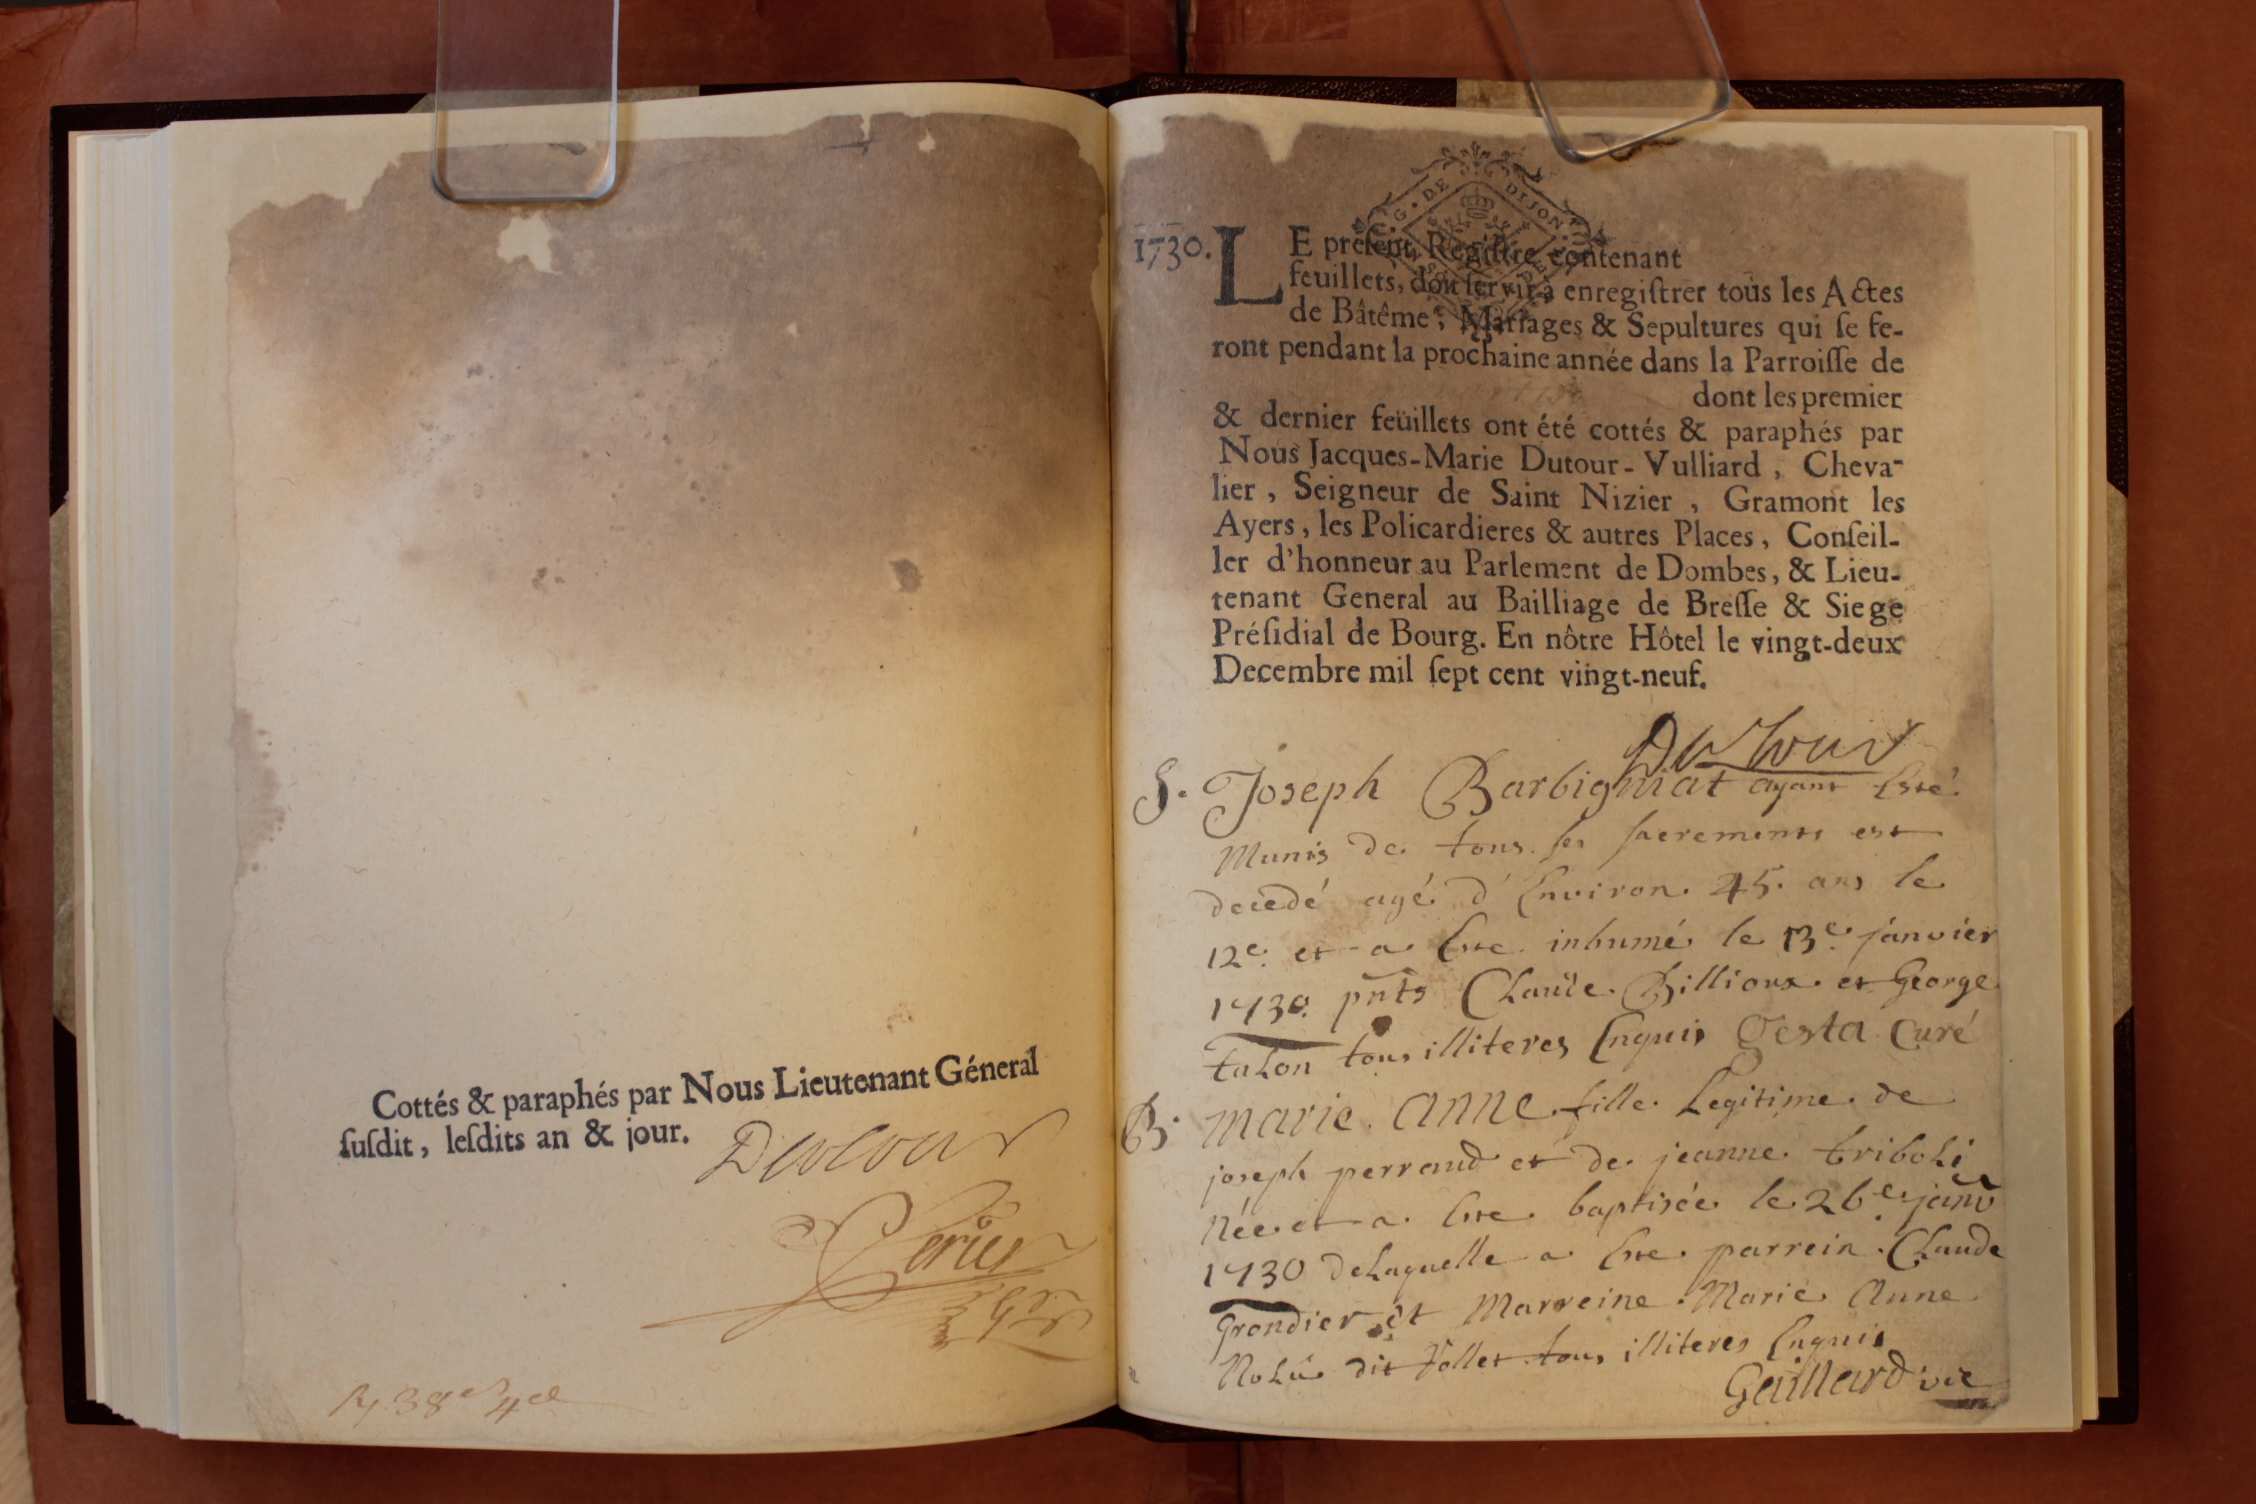 Cottés & paraphés par Nous Lieutenant Géneral
ſuſdit, leſdits an & jour.
Dutour
Perier
G. DE DIJON
1730.
LE preſent Regiſtre contenant
feuillets, doit ſervir à enregiſtrer tous les Actes
de Bâtême, Mariages & Sepultures qui ſe fe-
ront pendant la prochaine année dans la Parroiſſe de
dont les premier
& dernier feüillets ont été cottés & paraphés par
Nous Jacques-Marie Dutour-Vulliard, Cheva-
lier, Seigneur de Saint Nizier, Gramont les
Ayers, les Policardieres & autres Places, Conſeil-
ler d'honneur au Parlement de Dombes, & Lieu-
tenant General au Bailliage de Breſſe & Siege
Préſidial de Bourg. En nôtre Hôtel le vingt-deux
Decembre mil ſept cent vingt-neuf.
Dutour
S. Joseph Barbigniat ayant Esté
Munis de tous ses sacrements est
decedé agé d'Environ 45. ans le
12e. et a Este inhumé le 13e. janvier
1730. pnts Claude Billioux et George
talon tous illiteres Enquis Testa Curé
B. marie Anne fille Legitime de
joseph perraud et de jeanne triboli
Née et a Este baptisée le 26e. janv
1730 de laquelle a Este parrein Claude
Grondier et Marreine Marie Anne
dit follet tous illiteres Enquis
Gaillard vic